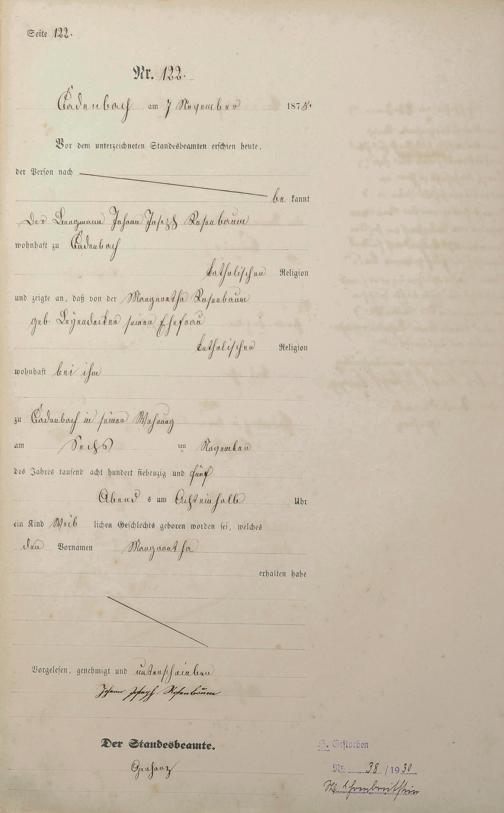 Seite 122.
Nr. 122.
Cadenbach am 7 November 1875.
Vor dem unterzeichneten Standesbeamten erschien heute,
der Person nach
be kannt
Der Johann Josef Rosenbaum
wohnhaft zu Cadenbach
katholischen Religion
und zeigte an, daß von der Margaretha Rosenbaum
geb. seiner Ehefrau
katholischen Religion
wohnhaft bei ihm
zu Cadenbach in seiner Wohnung
am Sechs ten November
des Jahres tausend acht hundert siebenzig und fünf
Abend s um Achteinhalb Uhr
ein Kind Weib lichen Geschlechts geboren worden sei, welches
den Vornamen Margaretha
erhalten habe
Vorgelesen, genehmigt und unterschrieben
Johann Joseph Rosenbaum
Der Standesbeamte.
Gestorben
Nr. 38/1930